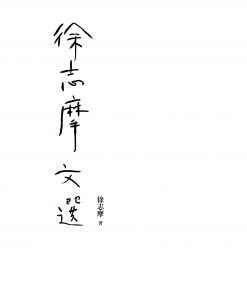 徐志摩文選
徐志摩 著